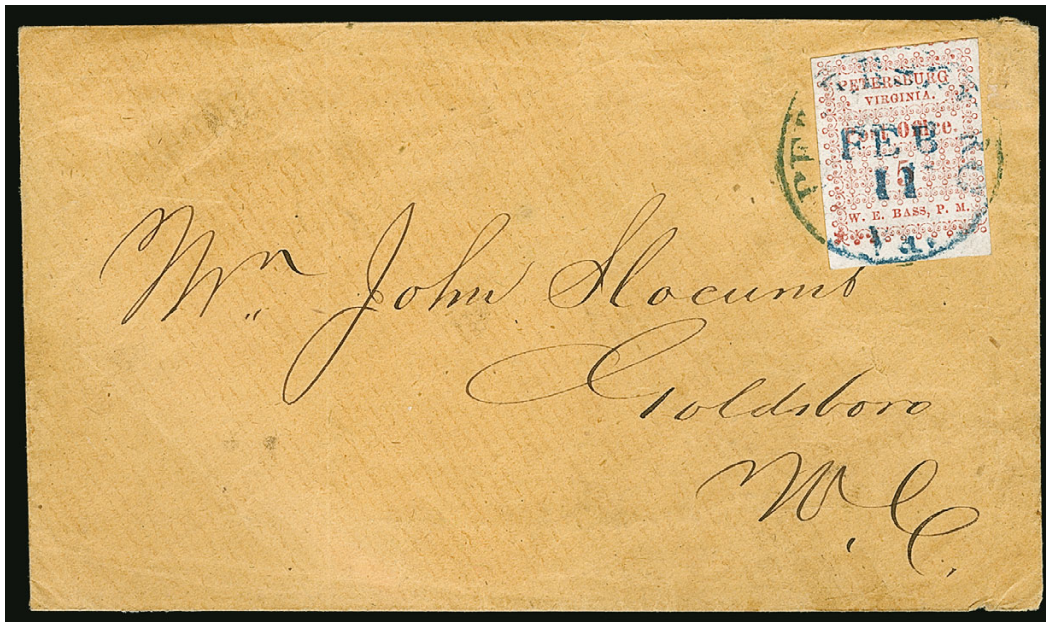 PETERSBURG
VIRGINIA.
Post Office
5
W. E. BASS, P. M.
FEB
11
Va.
Mr. John Slocumb
Goldsboro
N. C.